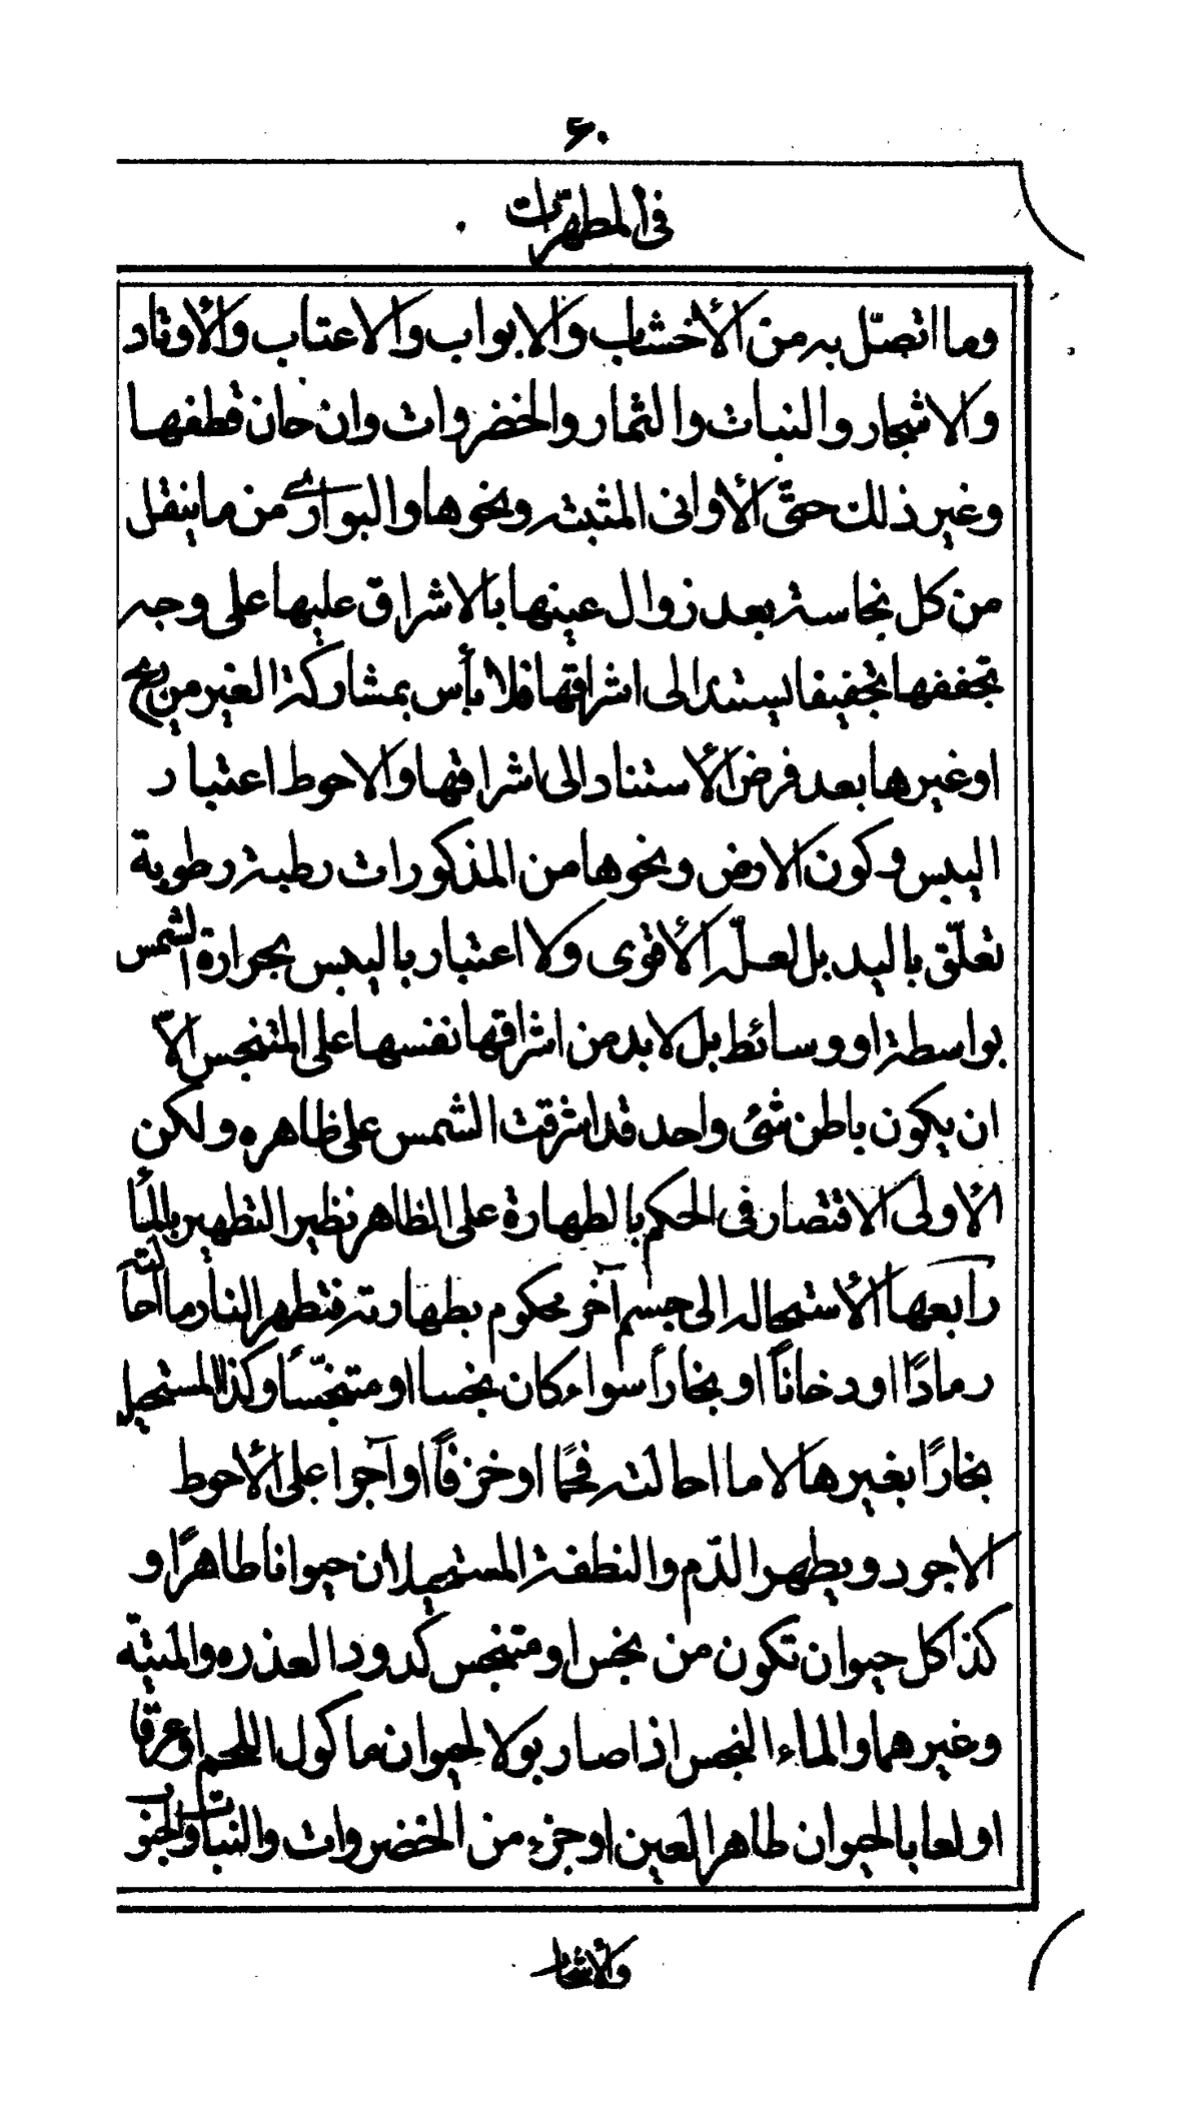 ۶۰
فی المطهرات
وما اتصّل به من الأخشاب والابواب والاعتاب والأوتاد
والاشجار والنبات والثمار والخضروات وان حان قطفها
وغیر ذلك حتّی الأوانی المثبته ونحوها والبواری من ما ینقل
من كل نجاسة بعد زوال عینها بالاشراق علیها علی وجه
تجففها تجفیفا یستند الی اشراقها فلا بأس بمشاركة الغیر من ریح
او غیرها بعد فرض الأستناد الی اشراقها والاحوط اعتبار
الیبس وكون الارض ونحوها من المذكورات رطبة رطوبة
تعلّق بالید بل لعلّه الأقوی ولا اعتبار بالیبس بحرارة الشمس
بواسطة او وسائط بل لابد من اشراقها نفسها علی المتنجس الّا
ان یكون باطن شئ واحد قد اشرقت الشمس علی ظاهره ولكن
الأولی الاقتصار فی الحكم بالطهارة علی الظاهر نظیر التطهیر بالمأ
رابعها الأستحاله الی جسم آخر محكوم بطهارته فتطهر النار ما احالته
رمادًا او دخاناً او بخاراً سواء كان نجسا او متنجّسأ وكذا المستحیل
بخارًا بغیرها لا ما احالته فحمًا او خزفاً او آجرا علی الأحوط
الاجود ویطهر الدّم والنطفة المستحیلان حیوانا طاهرًا و
كذا كل حیوان تكون من نجس او متنجس كدود العذره والمیتّه
وغیرهما والماء النجس اذا صار بولا لحیوان ماكول اللحم او عرقا
او لعابا لحیوان طاهر العین او جزء من الخضروات والنبات والحبوب
والأشجار